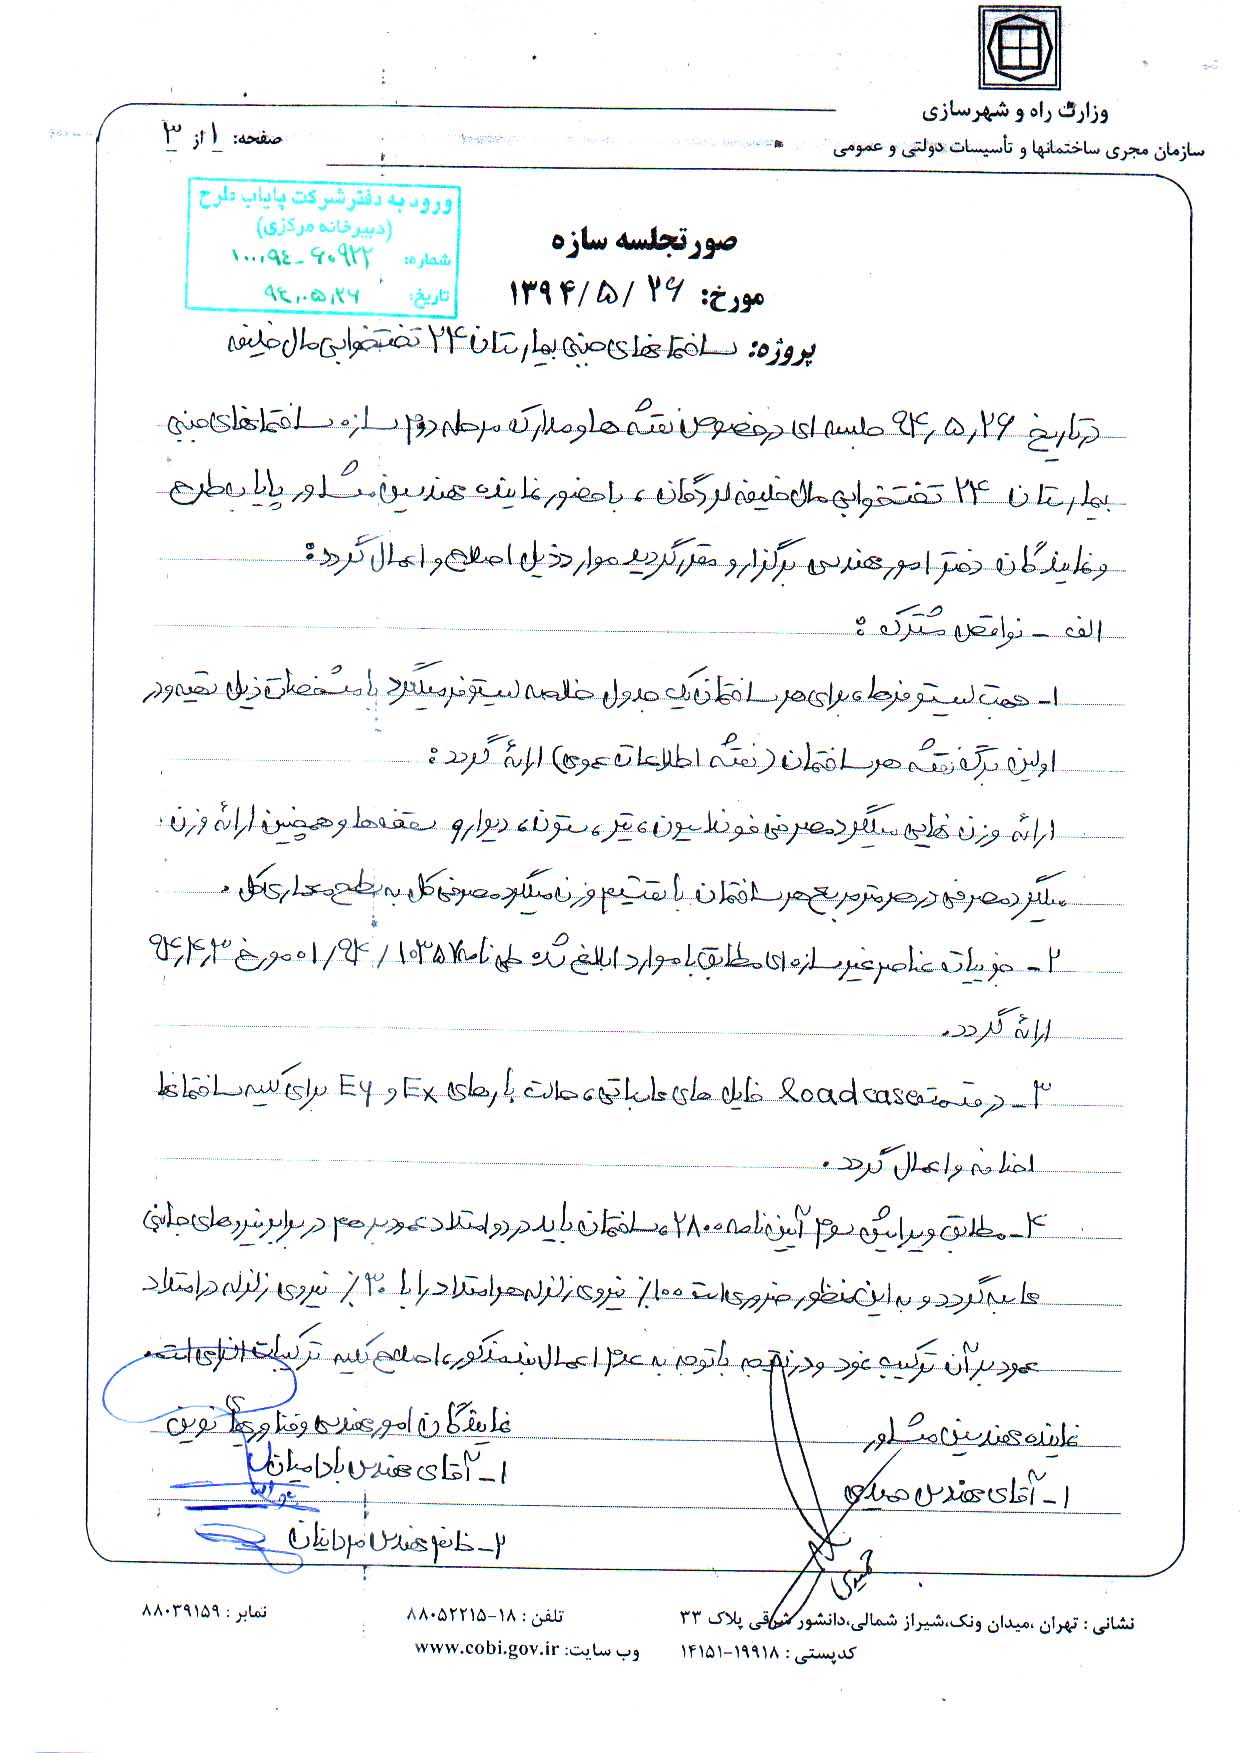 وزارت راه و شهرسازی
سازمان مجری ساختمانها و تأسیسات دولتی و عمومی
صفحه: ۱ از ۳
ورود به دفتر شرکت پایاب طرح
(دبیرخانه مرکزی)
شماره: ۱۰۰،۹۴-۶۰۹۲۲
تاریخ: ۹۴،۰۵،۲۶
صورتجلسه سازه
مورخ: ۱۳۹۴/۵/۲۶
پروژه: ساختمانهای جنبی بیمارستان ۲۴ تختخوابی مال خلیفه
در تاریخ ۹۴،۵،۲۶ جلسه ای در خصوص نقشه ها و مدارک مرحله دوم سازه ساختمانهای جنبی
بیمارستان ۲۴ تختخوابی مال خلیفه لردگان، با حضور نماینده مهندسین مشاور پایاب طرح
و نمایندگان دفتر امور مهندسی برگزار و مقرر گردید موارد ذیل اصلاح و اعمال گردد:
الف - نواقص مشترک:
۱- جهت لیستوفرها، برای هر ساختمان یک جدول خلاصه لیستوفر میلگرد با مشخصات ذیل تهیه و در
اولین برگ نقشه هر ساختمان (نقشه اطلاعات عمومی) ارائه گردد:
ارائه وزن نهایی میلگرد مصرفی فونداسیون، تیر، ستون، دیوار و سقفها و همچنین ارائه وزن
میلگرد مصرفی در هر مترمربع هر ساختمان با تقسیم وزن میلگرد مصرفی کل به سطح معماری کل.
۲- جزییات عناصر غیرسازه ای مطابق با موارد ابلاغ شده طی نامه ۱۰۳۵۷/۹۴/۰۱ مورخ ۹۴،۴،۳
ارائه گردد.
۳- در قسمت load case فایل های محاسباتی، حالت بارهای Ex و Ey برای کلیه ساختمانها
اضافه و اعمال گردد.
۴- مطابق ویرایش سوم آیین نامه ۲۸۰۰، ساختمان باید در دو امتداد عمود بر هم در برابر نیروهای جانبی
محاسبه گردد و به این منظور ضروری است ۱۰۰٪ نیروی زلزله هر امتداد را با ۳۰٪ نیروی زلزله در امتداد
عمود بر آن ترکیب نمود و در نتیجه با توجه به عدم اعمال بند مذکور، اصلاح کلیه ترکیبات الزامی است.
نماینده مهندسین مشاور
نمایندگان امور مهندسی و فناوریهای نوین
۱- آقای مهندس حمیدی
۱- آقای مهندس بادامیان
۲- خانم مهندس مردانیان
حمیدی
نشانی: تهران، میدان ونک، شیراز شمالی، دانشور شرقی پلاک ۳۳
تلفن: ۱۸-۸۸۰۵۲۲۱۵
نمابر: ۸۸۰۳۹۱۵۹
کدپستی: ۱۹۹۱۸-۱۴۱۵۱
وب سایت: www.cobi.gov.ir